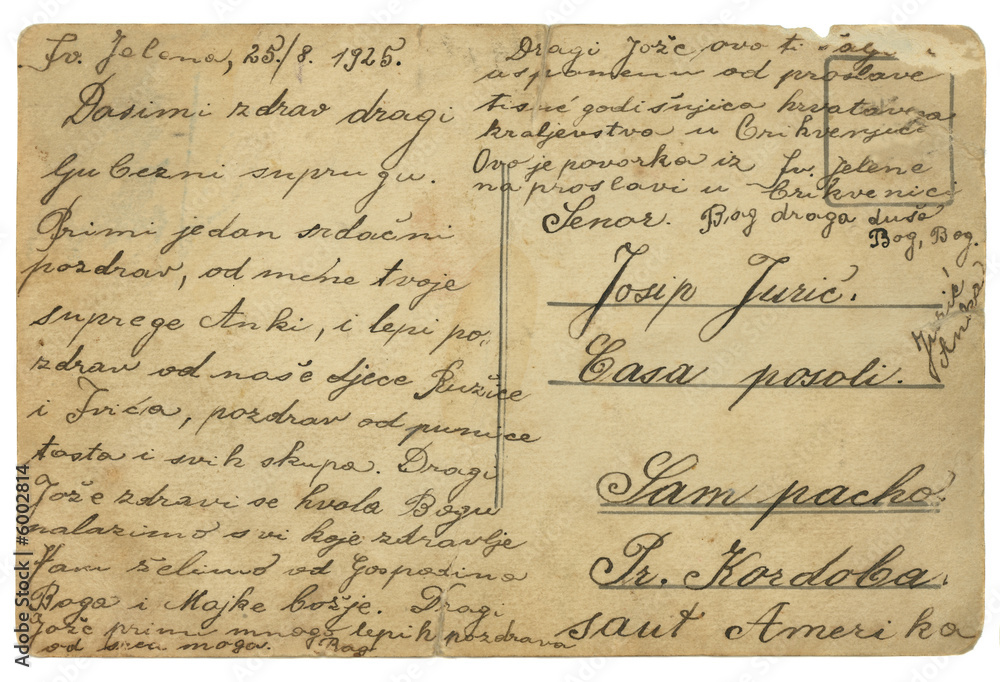 Sv. Jelena, 25./8. 1925.
Dasimi zdrav dragi
ljubezni suprugu.
Primi jedan srdačni
pozdrav, od mene tvoje
suprege Anki, i lepi po-
zdrav od naše djece Ružice
i Ivića, pozdrav od punice
tasta i svih skupa. Dragi
Jože zdravi se hvala Bogu
nalazimo svi koje zdravlje
Vam želimo od Gospodina
Boga i Majke božje. Dragi
Jože primi mnogo lepih pozdrava
od srca moga. Bog
Dragi Jože ovo ti šalj
uspomenu od proslave
tisuć godišnjica hrvatav
kraljevstva u Crikvenjici
Ovo je povorka iz Sv. Jelene
na proslavi u Crikvenici
Senor. Bog draga dušo
Bog, Bog.
Jurić
Anka
Josip Jurić.
Casa posoli.
Sam pacho.
Pr. Kordoba.
saut Amerika
Adobe Stock | #6002814